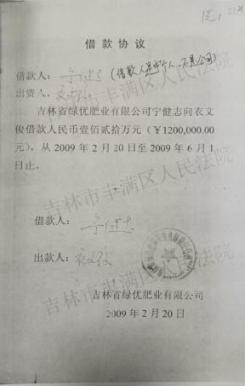 借款协议
借款人：宁健志（借款人是个人，不是公司）
出资人：衣文俊
吉林省绿优肥业有限公司宁健志向衣文
俊借款人民币壹佰贰拾万元（￥1200,000.00
元），从 2009 年 2 月 20 日至 2009 年 6 月 1
日止。
借款人：宁健志
出款人：衣文俊
吉林省绿优肥业有限公司
2009 年 2 月 20 日
吉林市丰满区人民法院
吉林市丰满区人民法院